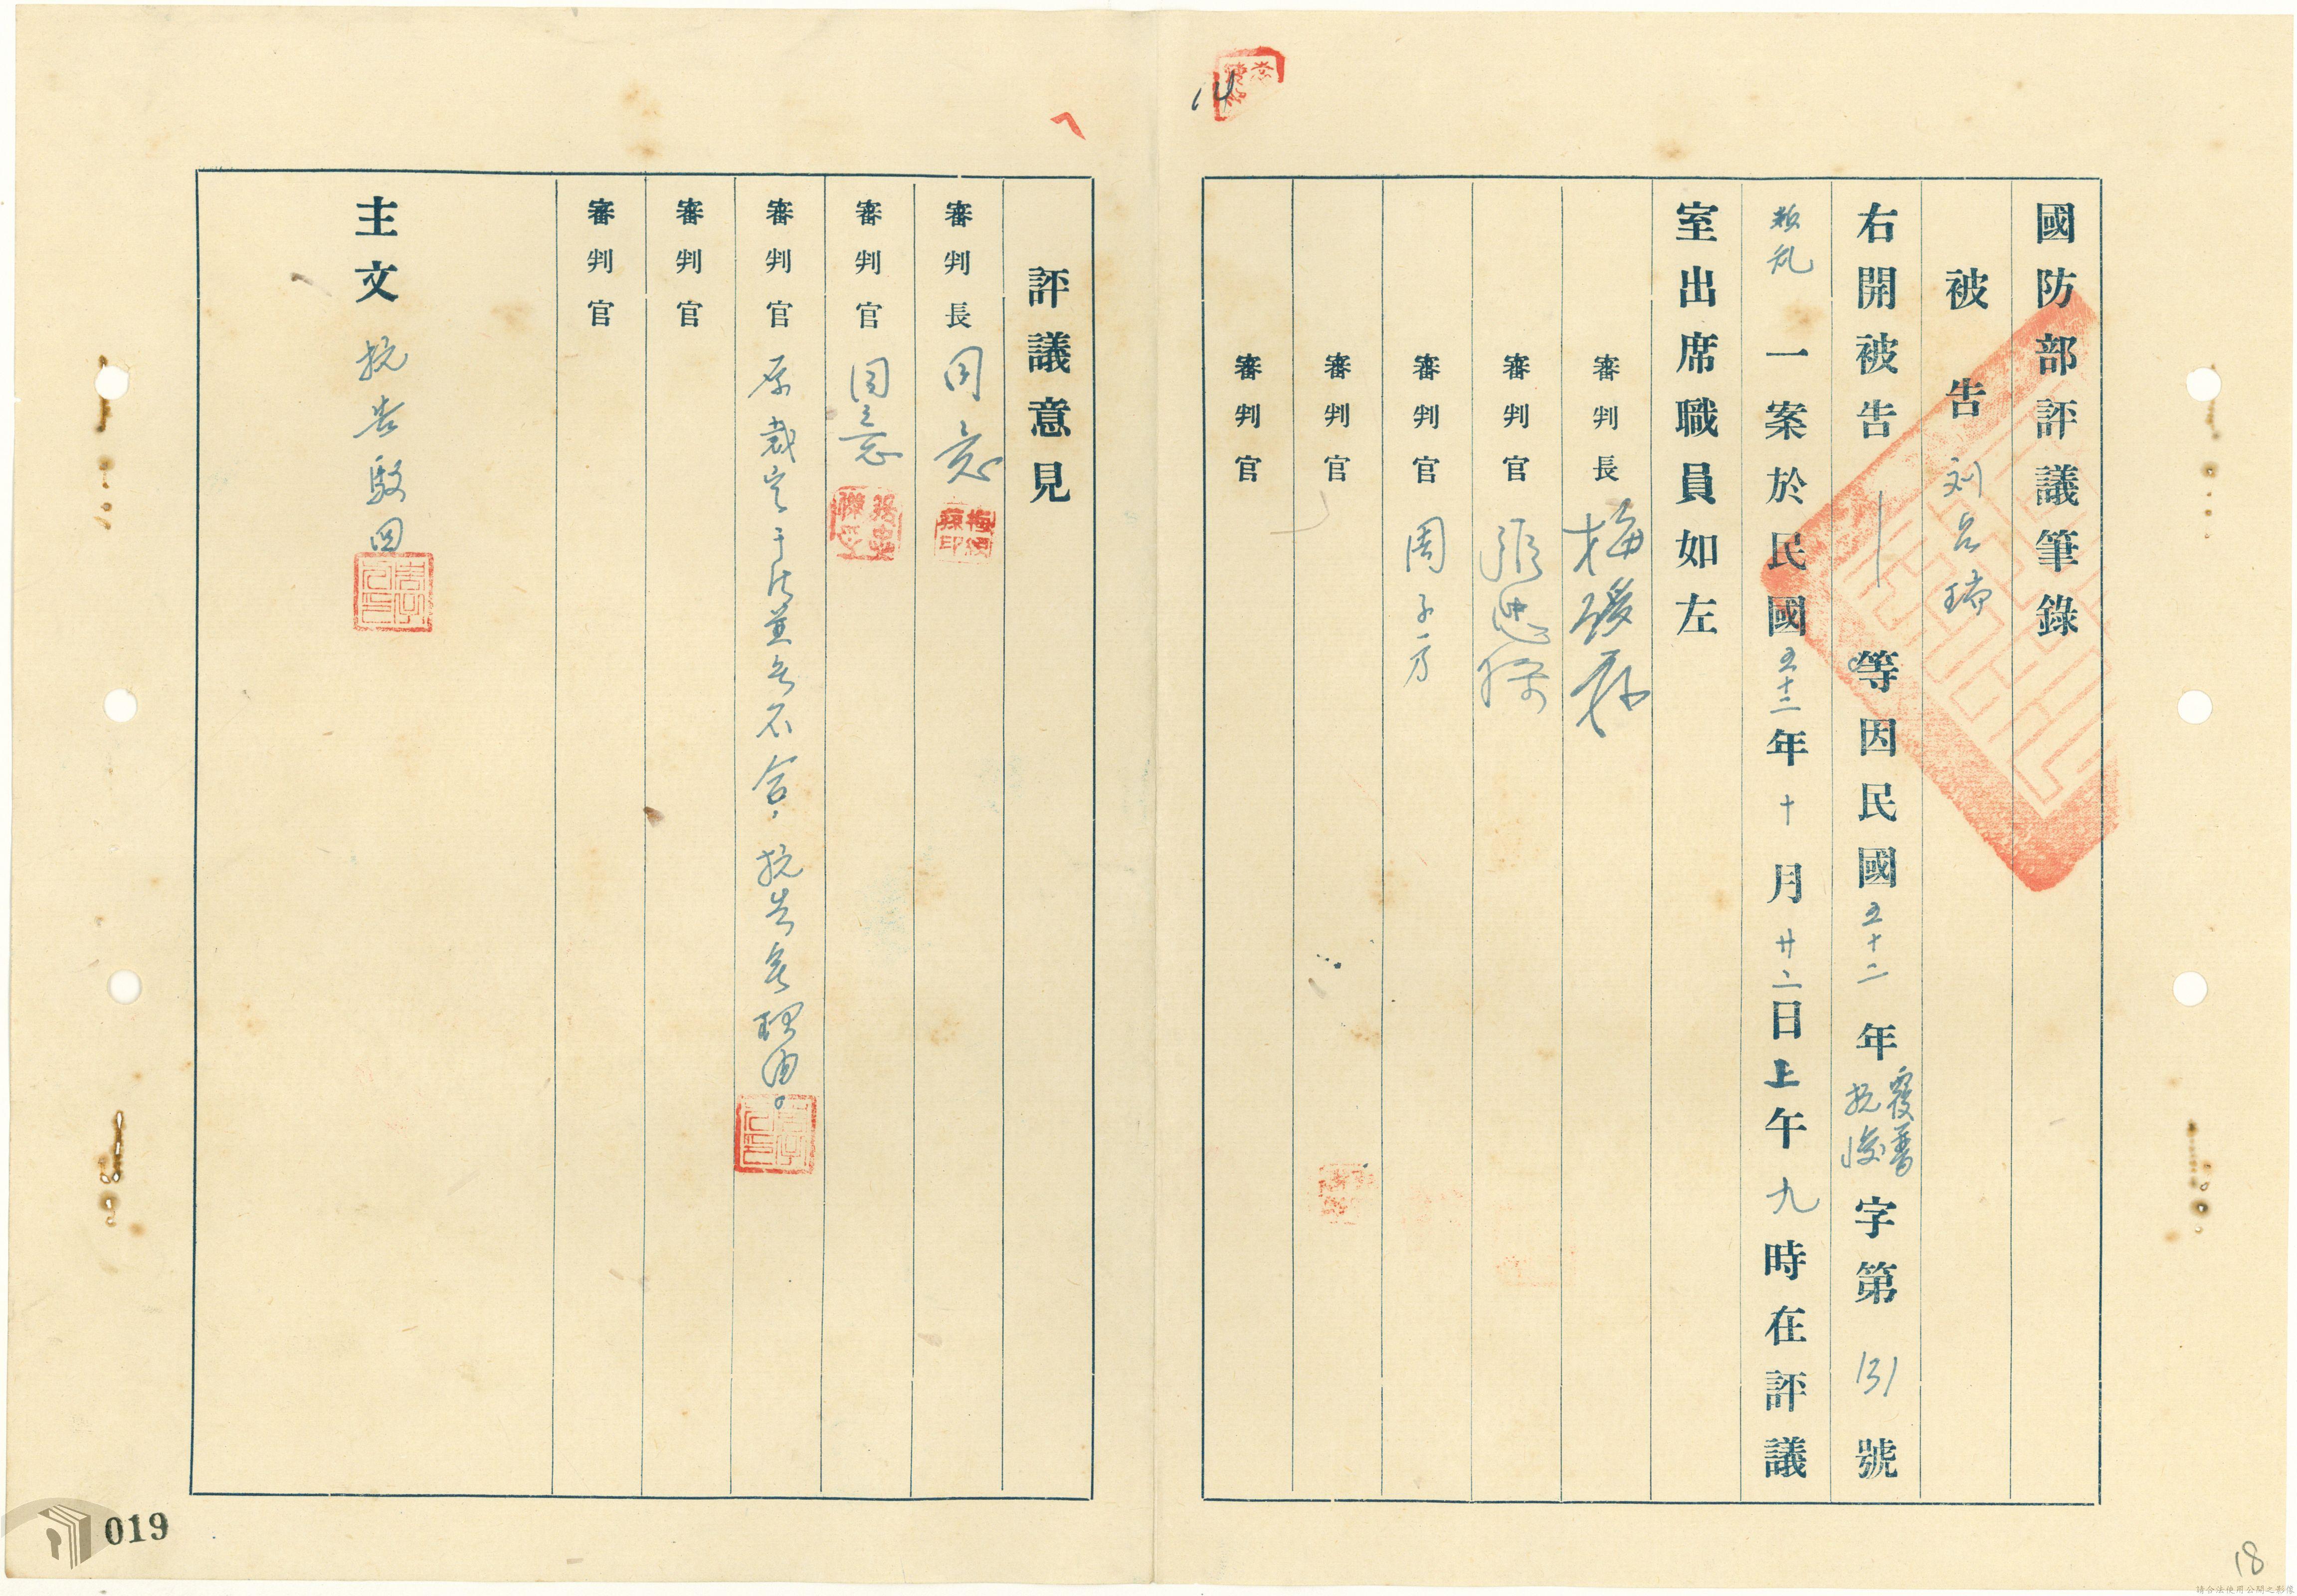 14
國防部評議筆錄
被告 刘呂瑞
右開被告 等因民國五十二年覆普抗復字第131號
叛乱一案於民國五十二年十月廿二日上午九時在評議
室出席職員如左
審判長 梅綬蓀
審判官 張忠傑
審判官 周子方
審判官
審判官
評議意見
審判長 同意
審判官 同意
審判官 原裁定于法並無不合，抗告無理由。
審判官
審判官
主文 抗告駁回
019
18
請合法使用公開之影像